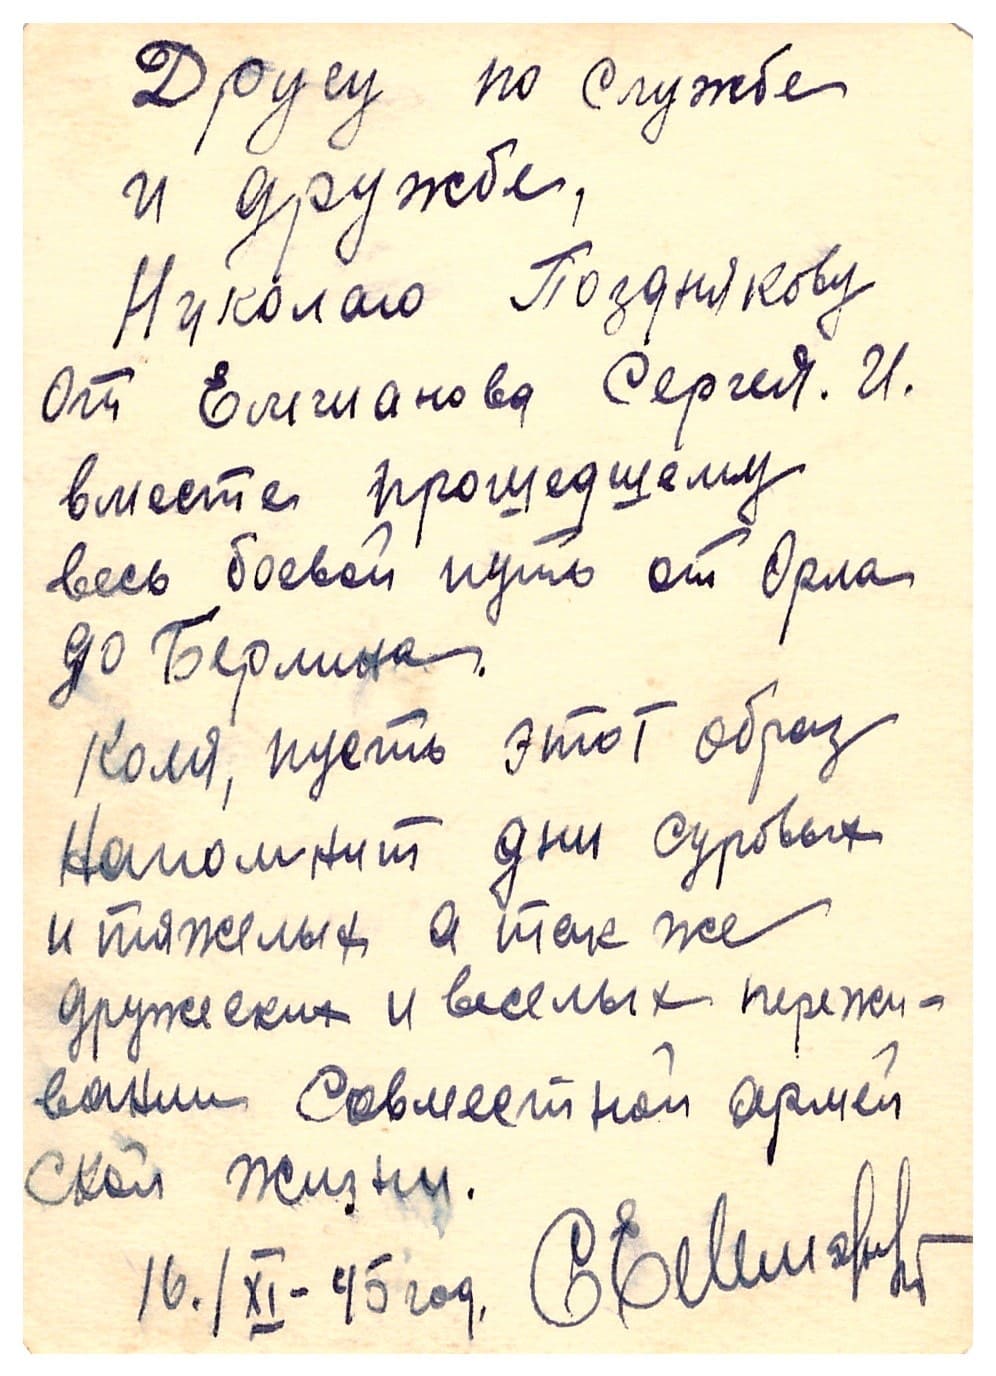 Другу по службе
и дружбе,
Николаю Позднякову
от Сергея. И.
вместе прошедшему
весь боевой путь от Орла
до Берлина.
Коля, пусть этот образ
напомнит дни суровых
и тяжелых а так же
дружеских и веселых пережи-
вании совместной армей
ской жизни.
16./XI-45 год.